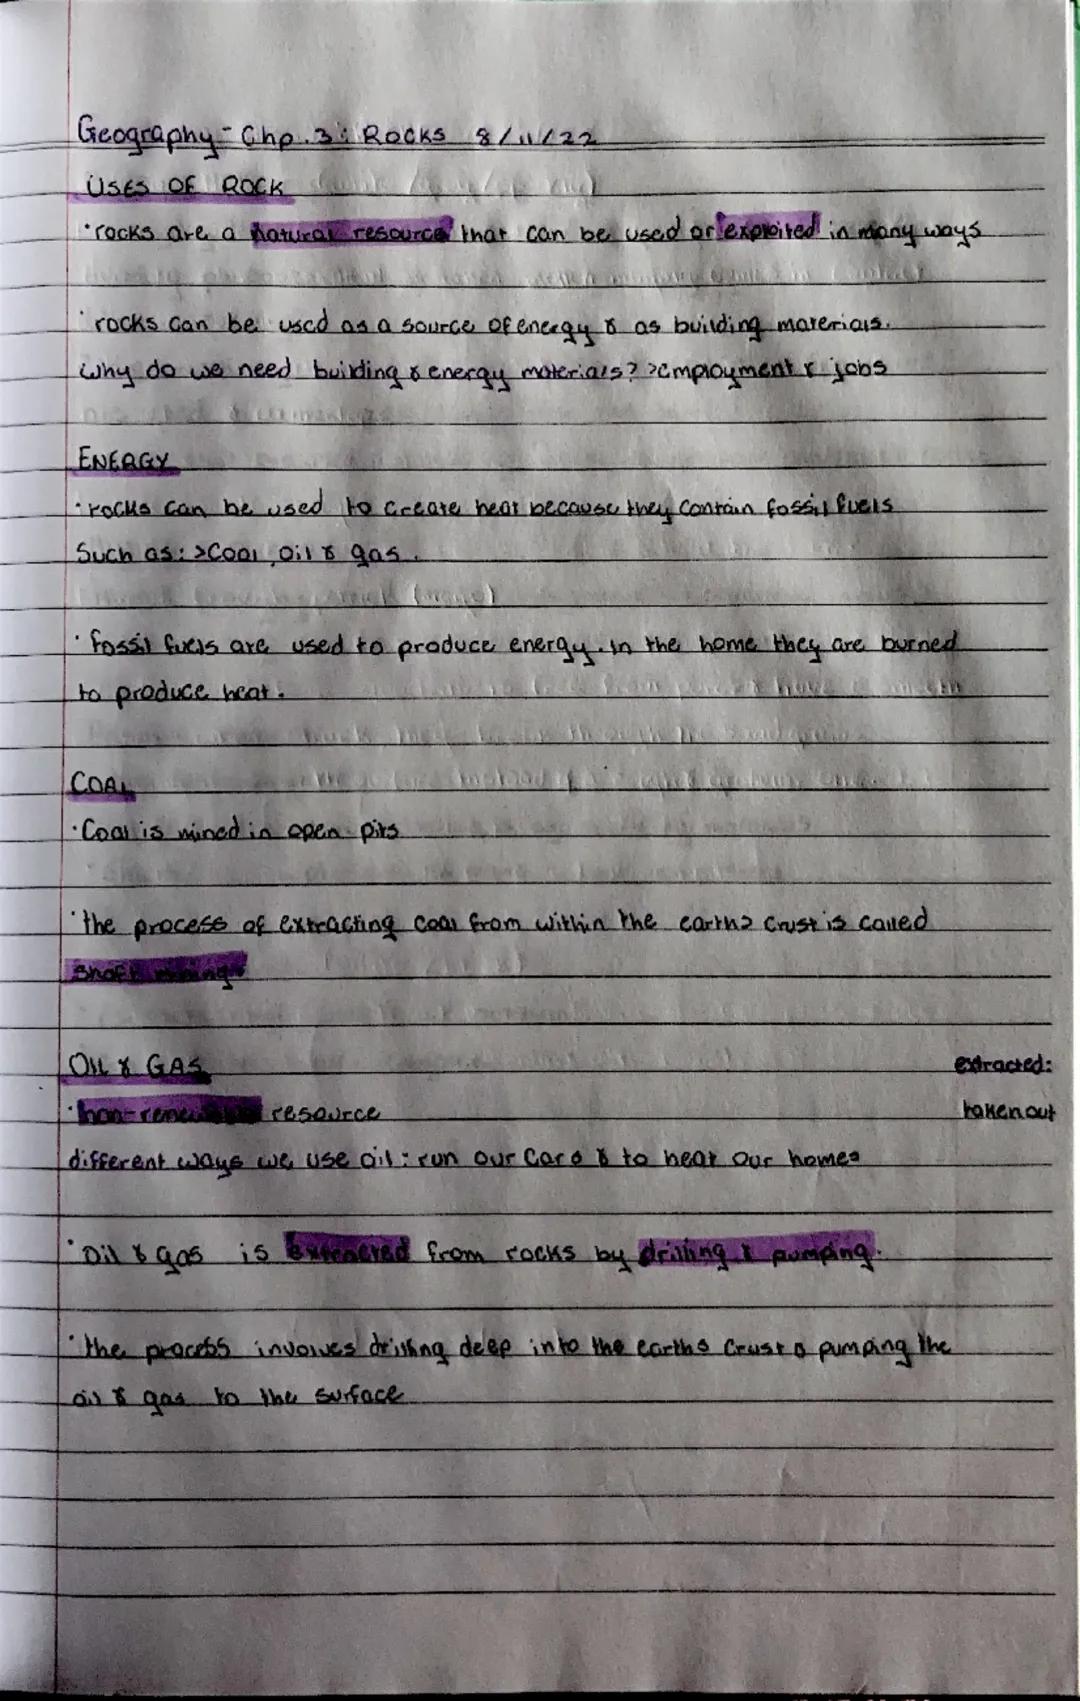 Geography - Chp. 3: Rocks 8/11/22
USES OF ROCK
·rocks are a natural resource that can be used or exploited in many ways
·rocks can be used as a source of energy & as building materials.
Why do we need building & energy materials? >employment & jobs
ENERGY
·rocks can be used to create heat because they contain fossil fuels
Such as: >Coal, oil & gas.
·fossil fuels are used to produce energy. In the home they are burned
to produce heat.
COAL
·Coal is mined in open pits
·the process of extracting coal from within the earths crust is called
Shaft mining
OIL & GAS
extracted:
·non-renewable resource
taken out
different ways we use oil: run our cars & to heat our homes
·Oil & gas is extracted from rocks by drilling & pumping.
·the process involves drilling deep into the earths crust & pumping the
oil & gas to the surface